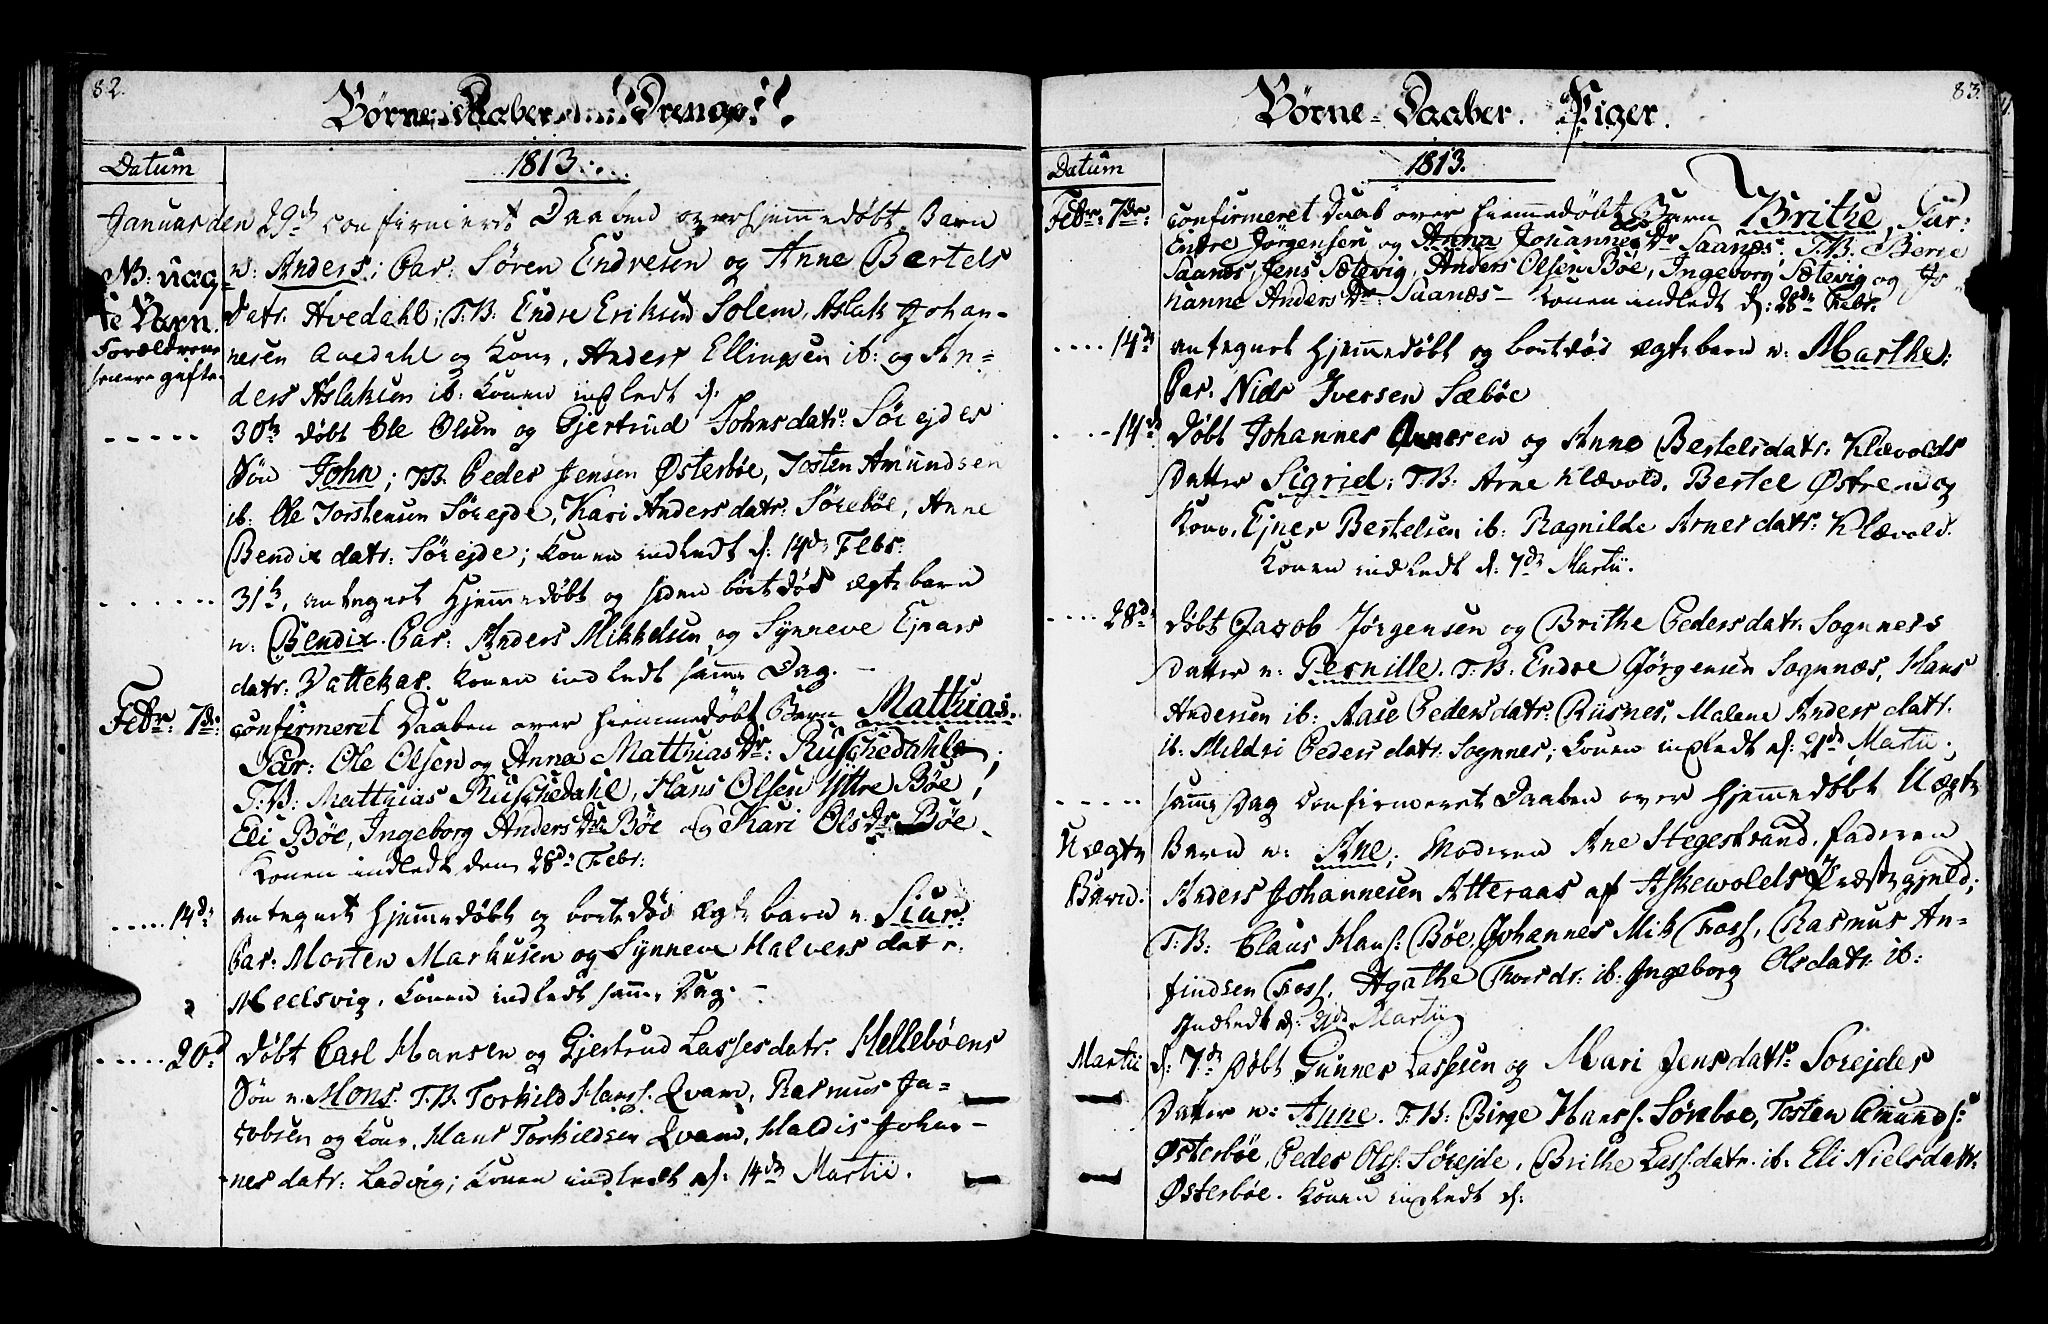 82.
Børne-Daaber Drenge
Datum
1813.
Januar den 29de confirmeret Daaben over hjemmedøbt Barn
NB. uæg-
te Barn.
Forældrene
senere gifte.
n: Anders; Par: Søren Endresen og Anne Bertels
datr. Hvedahl; T.B. Endre Eriksen Solem, Aslak Johan-
nesen Qvedahl og Kone, Anders Ellingsen ib: og An-
ders Aslaksen ib: Konen indledt d:
30te døbt Ole Olsen og Gjertrud Johnsdatr: Sørejdes
Søn John; T.B. Peder Jensen Østerbøe, Tosten Amundsen
ib: Ole Torstensen Sørejde, Kari Andersdatr: Sørebøe, Anne
Bendixdatr: Sørejde; Konen indledt d: 14de Febr:
31te, antegnet hjemmedøbt og siden bortdød ægte barn
n: Bendix. Par: Anders Mikkelsen og Synneve Ejnars
datr: Vattekar. Konen indledt samme Dag. -
Febr: 7de:
confirmeret Daaben over hiemmedøbt Barn Matthias.
Par: Ole Olsen og Anna Matthias Dr: Ruschedahls;
T.B: Matthias Ruschedahl, Hans Olsen Yttre Bøe,
Eli Bøe, Ingeborg Anders Dr Bøe og Kari Ols Dr Bøe.
Konen indledt den 28de Febr:
14de:
antegnet hjemmedøbt og bortdød ægte barn n. Siur.
Par: Morten Markusen og Synneve Halversdatr.
Meelsvig, Konen indledt samme Dag. -
20d
døbt Carl Hansen og Gjertrud Lassesdatr. Mellebøens
Søn n. Mons. T.B. Torkild Hanss. Qvam, Rasmus Ja-
cobsen og Kone, Hans Torkildsen Qvam, Haldis Johan-
nesdatr: Ladvig; Konen indledt d: 14de Martii.
83.
Børne-Daaber. Piger.
Datum
1813.
Febr: 7de:
confirmeret Daab over hiemmedøbt Barn Brithe, Par:
Endre Jørgensen og Anna Johannes Dr Saanæs. T.B: Berte
Saanæs, Jens Sætevig, Anders Olsen Bøe, Ingeborg Sætevig og Jo
hanne Anders Dr: Saanæs - Konen indledt d: 28de Febr.
14de
antegnet hjemmedøbt og bortdød ægte barn n: Marthe:
Par. Niels Iversen Sæbøe
14de
døbt Johannes Arnesen og Anne Bertelsdatr: Klævolds
Datter Sigrid; T.B: Arne Klævold, Bertel Østren og
Kone, Ejner Bertelsen ib: Ragnilde Arnesdatr: Klævold.
Konen indledt d: 7de Martii.
28de
døbt Jacob Jørgensen og Brithe Pedersdatr. Sognnes
Datter n: Pernille. T.B: Endre Jørgensen Sognnæs, Hans
Andersen ib: Aase Pedersdatr: Riisnes, Malene Andersdatr.
ib: Mildri Pedersdatr: Sognnes; Konen indledt d: 21de Martii.
samme Dag confirmeret Daaben over hjemmedøbt Uægte
Uægte
Barn.
Barn n: Ane; Moderen Ane Stegestrand, faderen
Anders Johannesen Atteraas af Askevolds Præstegjeld;
T.B: Claus Hans: Bøe, Johannes Mik Foss, Rasmus An-
findsen Foss, Agathe Thorsdr: ib: Ingeborg Olsdatr: ib:
Indledt d: 21de Martii
Martii
d: 7de døbt Gunner Lassesen og Mari Jensdatr: Sørejdes
Datter n: Anne. T.B: Birge Hanss. Sørebøe, Tosten Amunds:
Østerbøe, Peder Olss. Sørejde, Brithe Lassdatr. ib. Eli Nielsdatr.
Østerbøe. Konen indledt d: